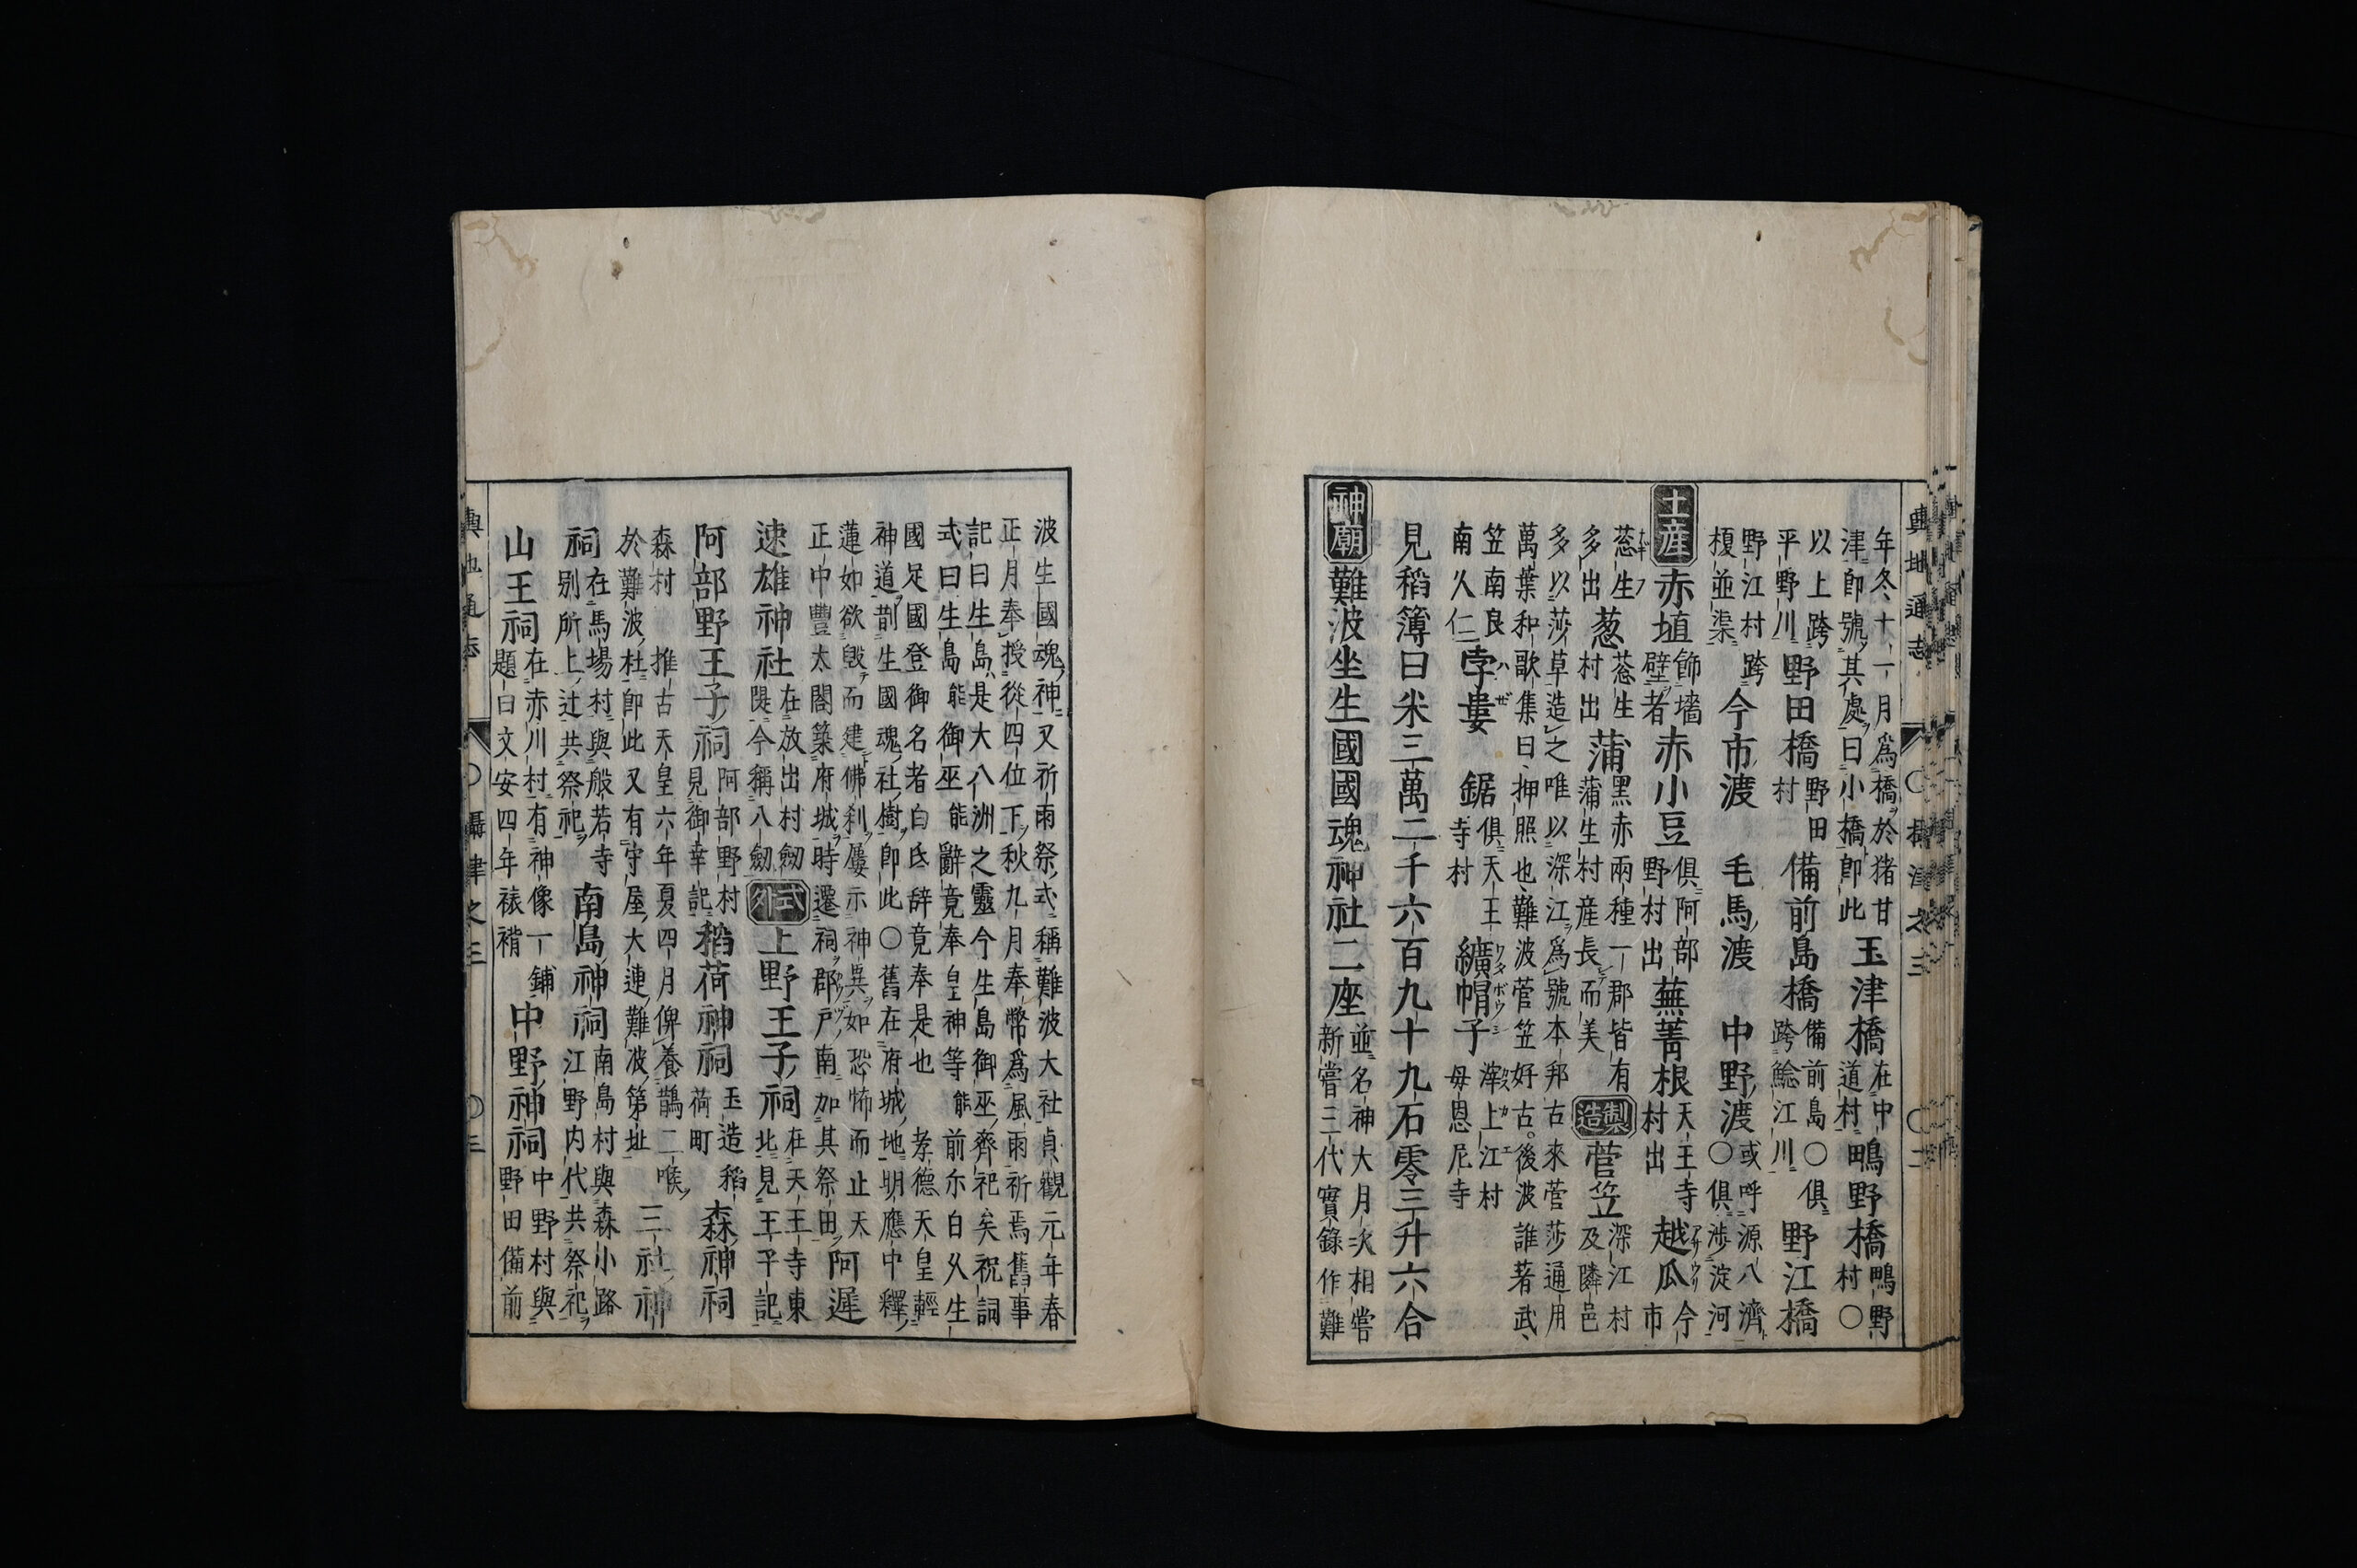 年冬十一月爲橋於猪甘
津卽號其處曰小橋卽此
玉津橋
在中
道村
鴫野橋
鴫野
村〇
以上跨
平野川
野田橋
野田
村
備前島橋
備前島〇俱
跨鯰江川
野江橋
野江村跨
榎並渠
今市渡
毛馬渡
中野渡
或呼源八濟
〇俱渉淀河
土產
赤埴
飾墻
壁者
赤小豆
俱阿部
野村出
蕪菁根
天王寺
村出
越瓜
今
市
葱生
多出
葱
葱生
村出
蒲
黑赤兩種一郡皆有
蒲生村産長而美
製造
菅笠
深江村
及隣邑
多以莎草造之唯以深江爲號本邦古來菅莎通用
萬葉和歌集曰押照也難波菅笠好古後波誰著武
笠南良
南久仁
孛婁
鋸
俱天王
寺村
纊帽子
滓上江村
母恩尼寺
見稻簿曰米三萬二千六百九十九石零三升六合
神廟
難波坐生國國魂神社二座
並名神大月次相嘗
新嘗三代實錄作難
輿地通志
〇攝津之三
〇二
波生國魂神又祈雨祭式稱難波大社貞觀元年春
正月奉授從四位下秋九月奉幣爲風雨祈焉舊事
記曰生島是大八洲之靈今生島御巫齊祀矣祝詞
式曰生島能御巫能辭竟奉皇神等能前尓白久生
國足國登御名者白氐辞竟奉是也孝德天皇輕
神道㓨生國魂社樹卽此〇舊在府城地明應中釋
蓮如欲毀而建佛刹屢示神異如恐怖而止天
正中豐太閤築府城時遷祠郡戸南加其祭田
阿遲
速雄神社
在放出村劒
隄今稱八劒
式外
上野王子祠
在天王寺東
北見王平記
阿部野王子祠
阿部野村
見御幸記
稻荷神祠
玉造稻
荷町
森神祠
森村推古天皇六年夏四月俾養鵲二喉
於難波杜卽此又有守屋大連難波第址
三社神
祠
在馬場村與般若寺
別所上辻共祭祀
南島神祠
南島村與森小路
江野內代共祭祀
山王祠
在赤川村有神像一鋪
題曰文安四年裱褙
中野神祠
中野村與
野田備前
輿地通志
〇攝津之三
〇三